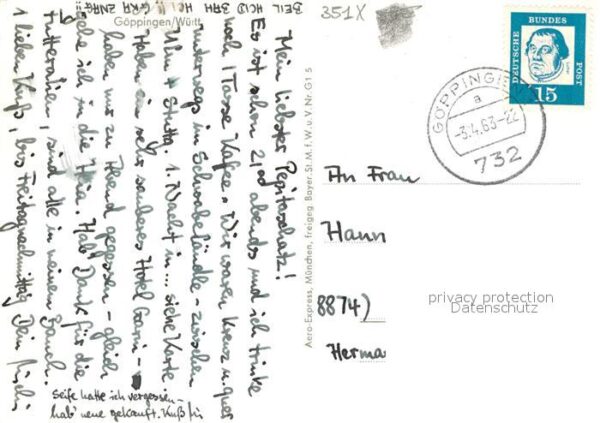 351X
Göppingen/Württ
Mein liebster Pepitaschatz!
Es ist schon 21°° abends und ich trinke
noch 1 Tasse Kafee. Wir waren kreuz u. quer
unterwegs in Schwabeländle - zwischen
Ulm + Stuttg. 1. Nacht in... siehe Karte
Haben ein sehr sauberes Hotel Garni -
haben nur zu Abend gegessen - gleich
gehe ich in die Heia. Hab' Dank für die
Futteralien, sind alle in meinem Bauch.
1 lieben Kuß, bis Freitagnachmittag Dein
Seife hatte ich vergessen -
hab' neue gekauft. Kuß
Aero-Express, München, freigeg. Bayer. St. M. f. W. u. V. Nr. G15
DEUTSCHE
BUNDES
POST
15
GÖPPINGEN
a
-3.4.63-22
732
An Frau
Hann
8874)
Herma
privacy protection
Datenschutz